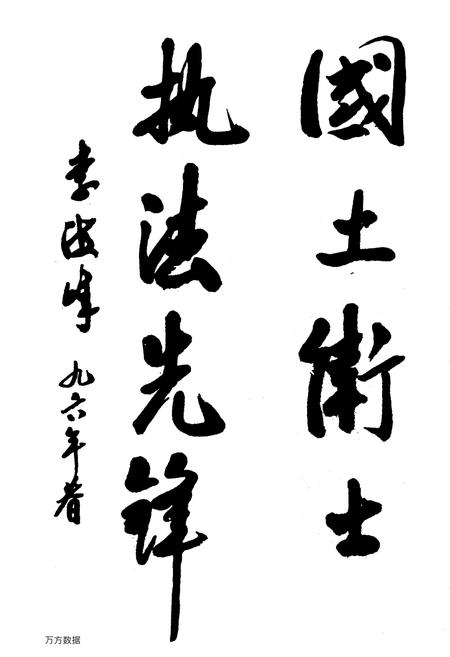 國土衛士
执法先锋
李海峰 九六年春
万方数据